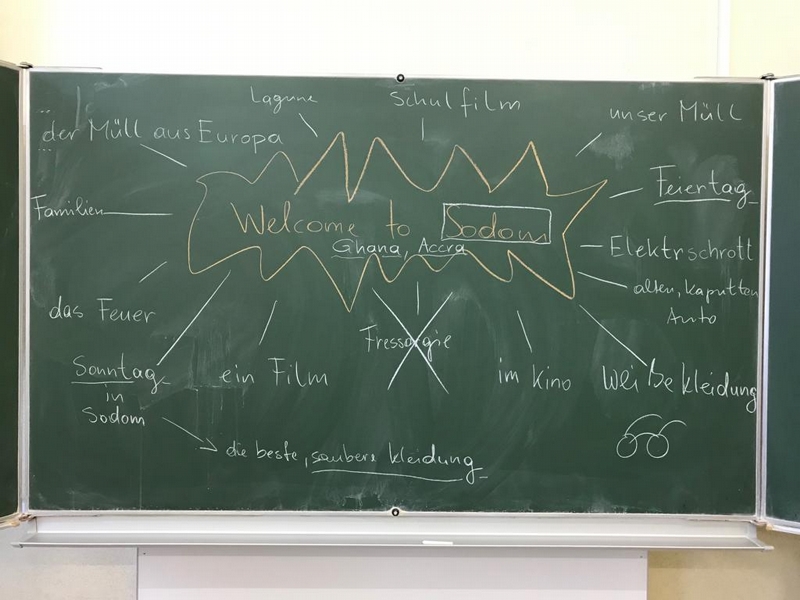 Lagune
Schulfilm
unser Müll
der Müll aus Europa
Feiertag
Familien
Welcome to Sodom
Ghana, Accra
Elektrschrott
alten, kaputten
Auto
das Feuer
Fressorgie
Sonntag
in
Sodom
ein Film
im Kino
weiße kleidung
die beste, saubere kleidung